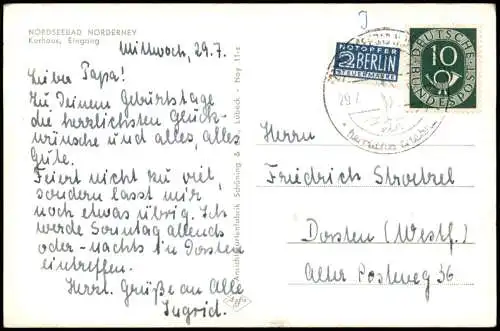 NORDSEEBAD NORDERNEY
Kurhaus, Eingang
Mittwoch, 29.7.
Lieber Papa!
Zu Deinem Geburtstage
die herrlichsten Glück-
wünsche und alles, alles
Gute.
Feiert nicht zu viel,
sondern lasst mir
noch etwas übrig. Ich
werde Sonntag abends
oder -nachts in Dorsten
eintreffen.
Herzl. Grüße an Alle
Ingrid.
Ansichtskartenfabrik Schöning & Lübeck - Noy 11
Agfa
NOTOPFER
2 BERLIN
STEUERMARKE
DEUTSCHE
BUNDESPOST
10
29.7.
Herrn
Friedrich Stroetzel
Dorsten (Westf.)
Alter Postweg 36